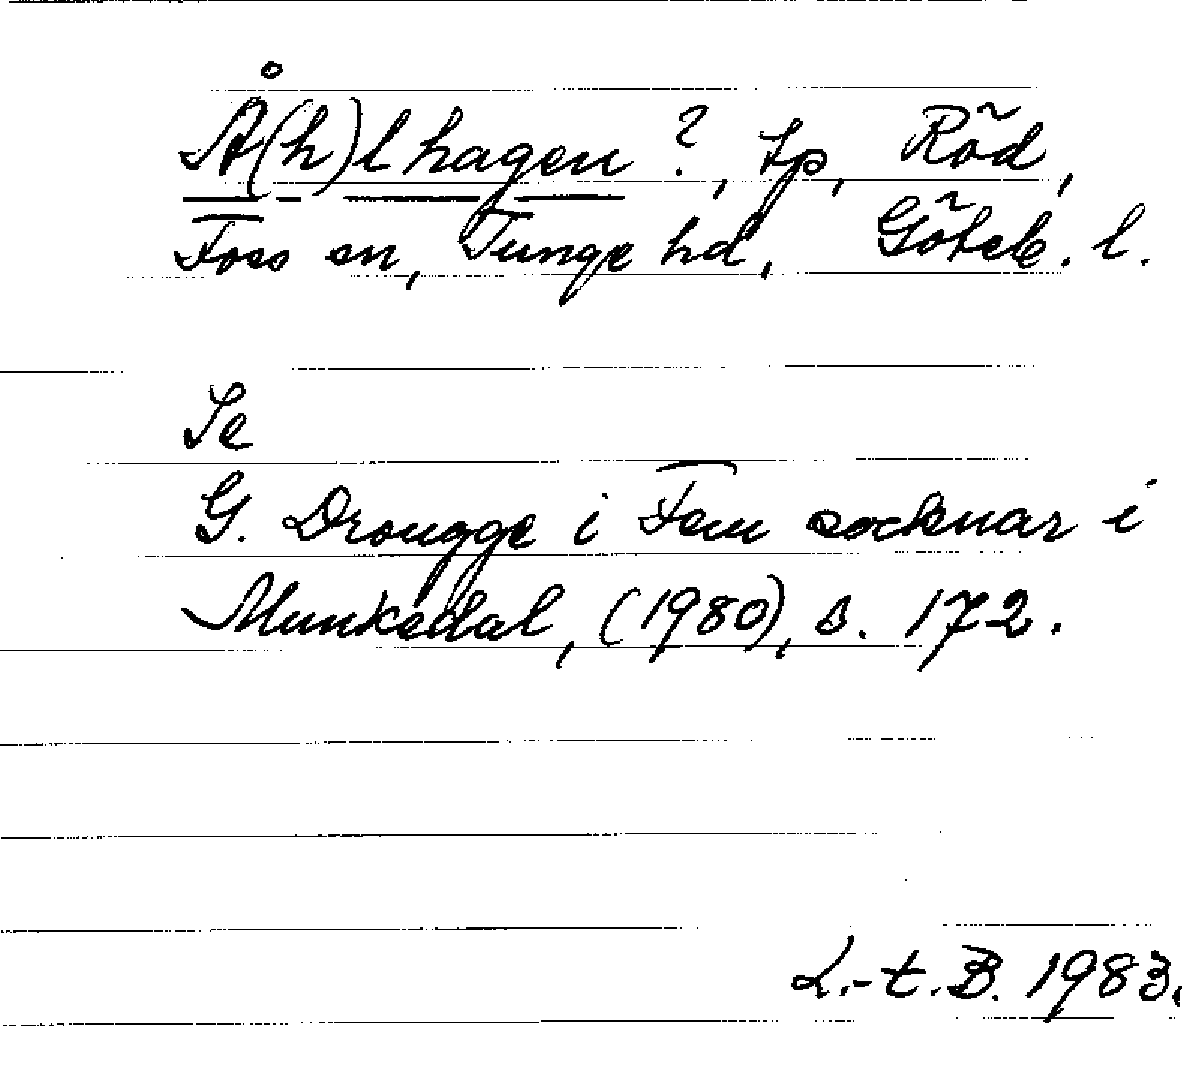 Å(h)lhagen ?, tp, Röd,
Foss sn, Tunge hd, Göteb. l.
Se
G. Drougge i Fem socknar i
Munkedal, (1980), s. 172.
L.-t. B. 1983.